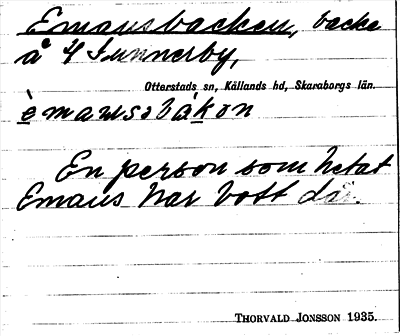 Emausbacken, backe
å 4 Sunnerby,
Otterstads sn, Källands hd, Skaraborgs län.
En person som hetat
Emaus har bott där.
THORVALD JONSSON 1935.